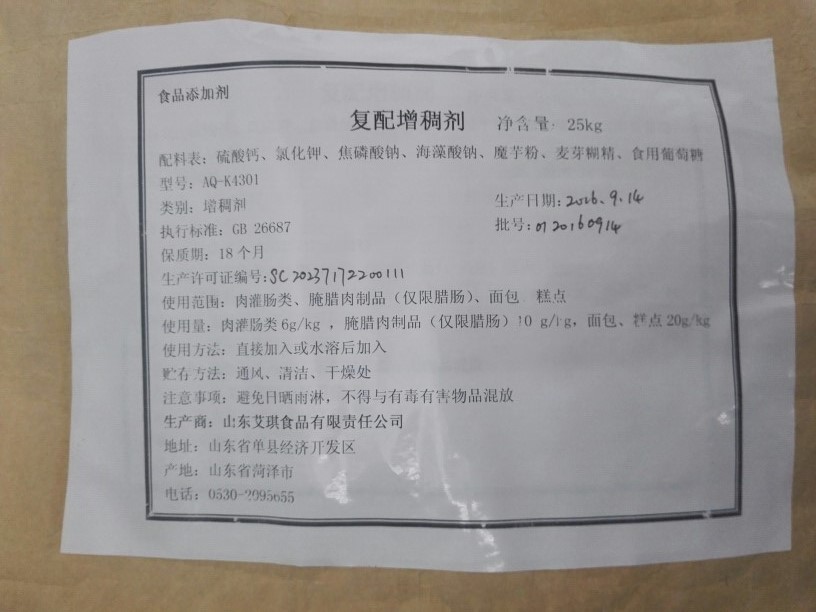 食品添加剂
复配增稠剂 净含量: 25kg
配料表：硫酸钙、氯化钾、焦磷酸钠、海藻酸钠、魔芋粉、麦芽糊精、食用葡萄糖
型号：AQ-K4301
类别：增稠剂 生产日期：2016.9.14
执行标准：GB 26687 批号：0120160914
保质期：18个月
生产许可证编号：SC20237172200111
使用范围：肉灌肠类、腌腊肉制品（仅限腊肠）、面包 糕点
使用量：肉灌肠类6g/kg，腌腊肉制品（仅限腊肠）10 g/kg，面包、糕点20g/kg
使用方法：直接加入或水溶后加入
贮存方法：通风、清洁、干燥处
注意事项：避免日晒雨淋，不得与有毒有害物品混放
生产商：山东艾琪食品有限责任公司
地址：山东省单县经济开发区
产地：山东省菏泽市
电话：0530-2095655